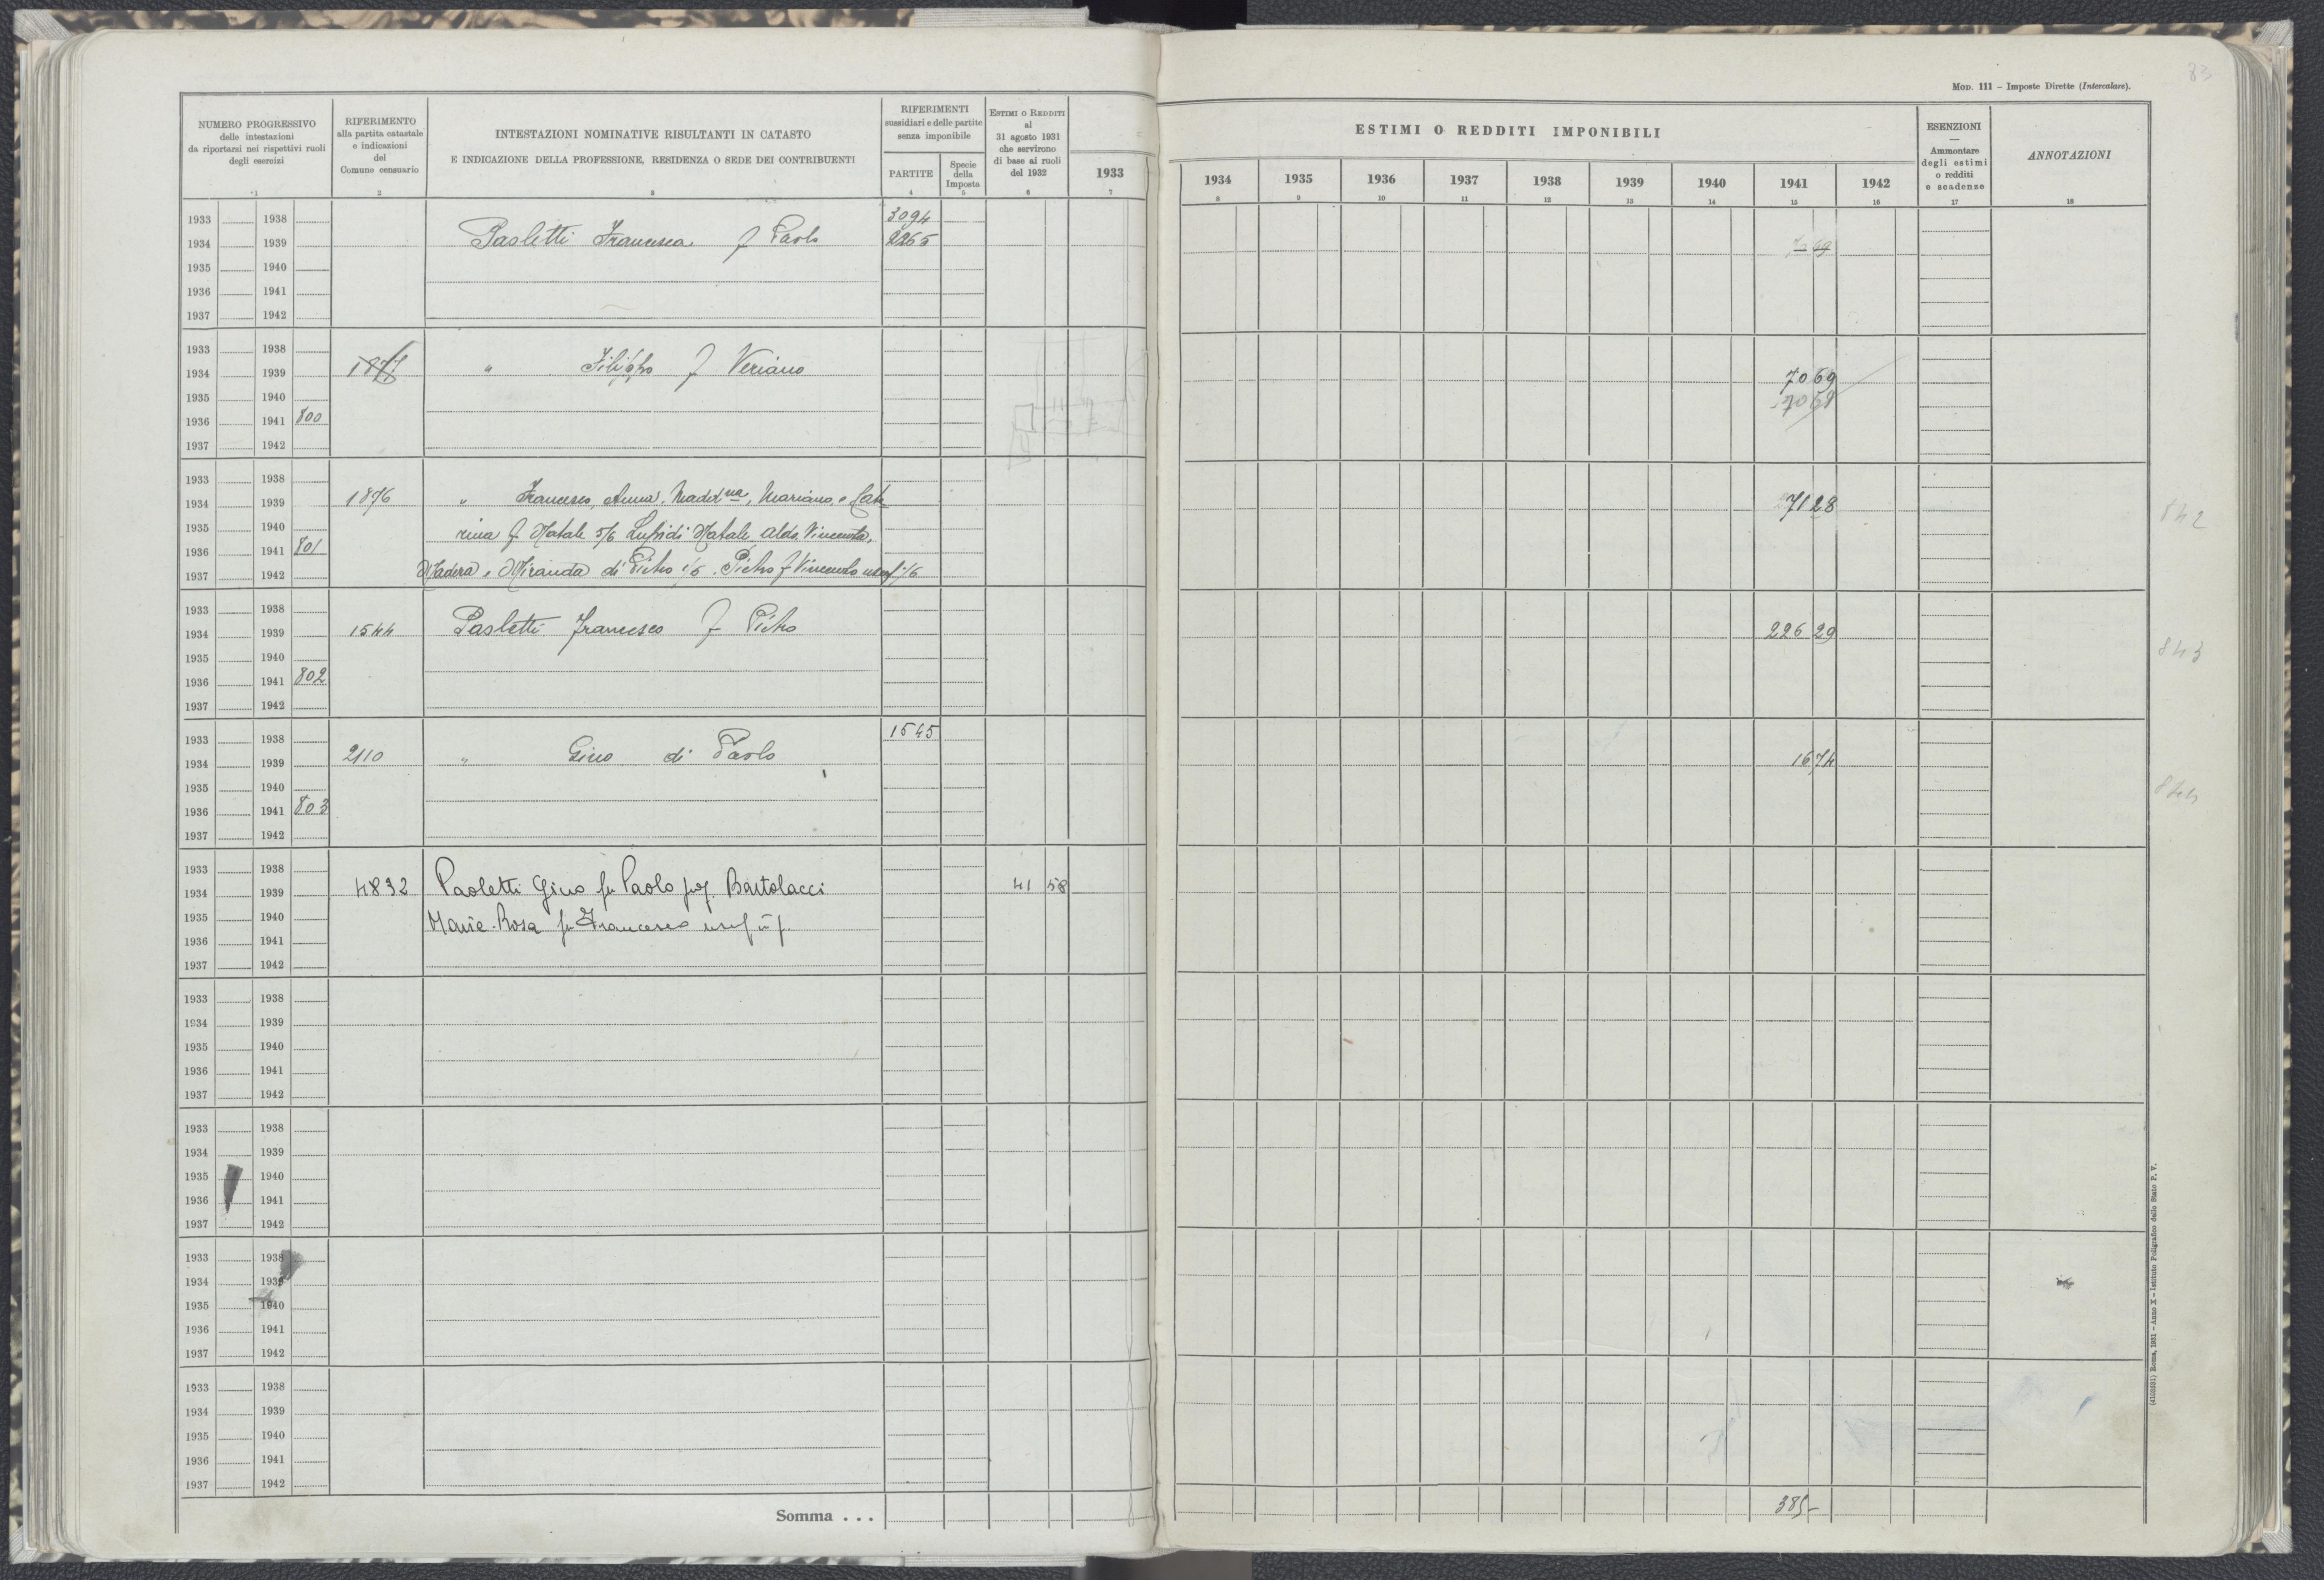 83
Mod. 111 – Imposte Dirette (Intercalare).
NUMERO PROGRESSIVO
delle intestazioni
da riportarsi nei rispettivi ruoli
degli esercizi
1
RIFERIMENTO
alla partita catastale
e indicazioni
del
Comune censuario
2
INTESTAZIONI NOMINATIVE RISULTANTI IN CATASTO
E INDICAZIONE DELLA PROFESSIONE, RESIDENZA O SEDE DEI CONTRIBUENTI
3
RIFERIMENTI
sussidiari e delle partite
senza imponibile
PARTITE
4
Specie
della
Imposta
5
Estimi o Redditi
al
31 agosto 1931
che servirono
di base ai ruoli
del 1932
6
1933
7
ESTIMI O REDDITI IMPONIBILI
1934 1935 1936 1937 1938 1939 1940 1941 1942
8 9 10 11 12 13 14 15 16
ESENZIONI
—
Ammontare
degli estimi
o redditi
e scadenze
17
ANNOTAZIONI
18
1933 1938 3094
1934 1939 Paoletti Francesca f Paolo 2265 70 69
1935 1940
1936 1941
1937 1942
1933 1938
1934 1939 1877 " Filippo f Veriano 70 69
1935 1940 70 68
1936 1941 800
1937 1942
1933 1938
1934 1939 1876 " Francesco, Anna, Madd.na, Mariano, e Cate 71 28 842
1935 1940 rina f Natale 5/6 Natale Aldo, Vincenta,
1936 1941 801
1937 1942 Madera e Miranda di Pietro 1/6. Pietro f Vincenzo usuf 1/6
1933 1938
1934 1939 1544 Paoletti Francesco f Pietro 226 29 843
1935 1940
1936 1941 802
1937 1942
1933 1938 1545
1934 1939 2110 " Gino di Paolo 16 74
1935 1940 844
1936 1941 803
1937 1942
1933 1938
1934 1939 4832 Paoletti Gino fu Paolo prop. Bartolacci 41 58
1935 1940 Maria-Rosa fu Francesco usuf in p.
1936 1941
1937 1942
1933 1938
1934 1939
1935 1940
1936 1941
1937 1942
1933 1938
1934 1939
1935 1940
1936 1941
1937 1942
1933 1938
1934 1939
1935 1940
1936 1941
1937 1942
1933 1938
1934 1939
1935 1940
1936 1941
1937 1942
Somma . . . 385-
(4103531) Roma, 1931 – Anno X – Istituto Poligrafico dello Stato P. V.